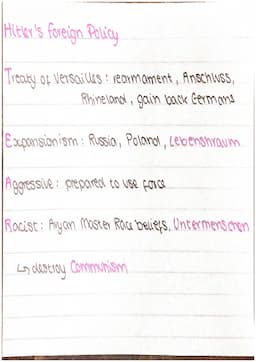 Hitler's Foreign Policy
Treaty of Versailles : rearmament, Anschluss,
Rhineland, gain back Germans
Expansionism : Russia, Poland, Lebensraum
Aggressive : prepared to use force
Racist : Aryan Master Race beliefs, Untermenschen
↳ destroy Communism